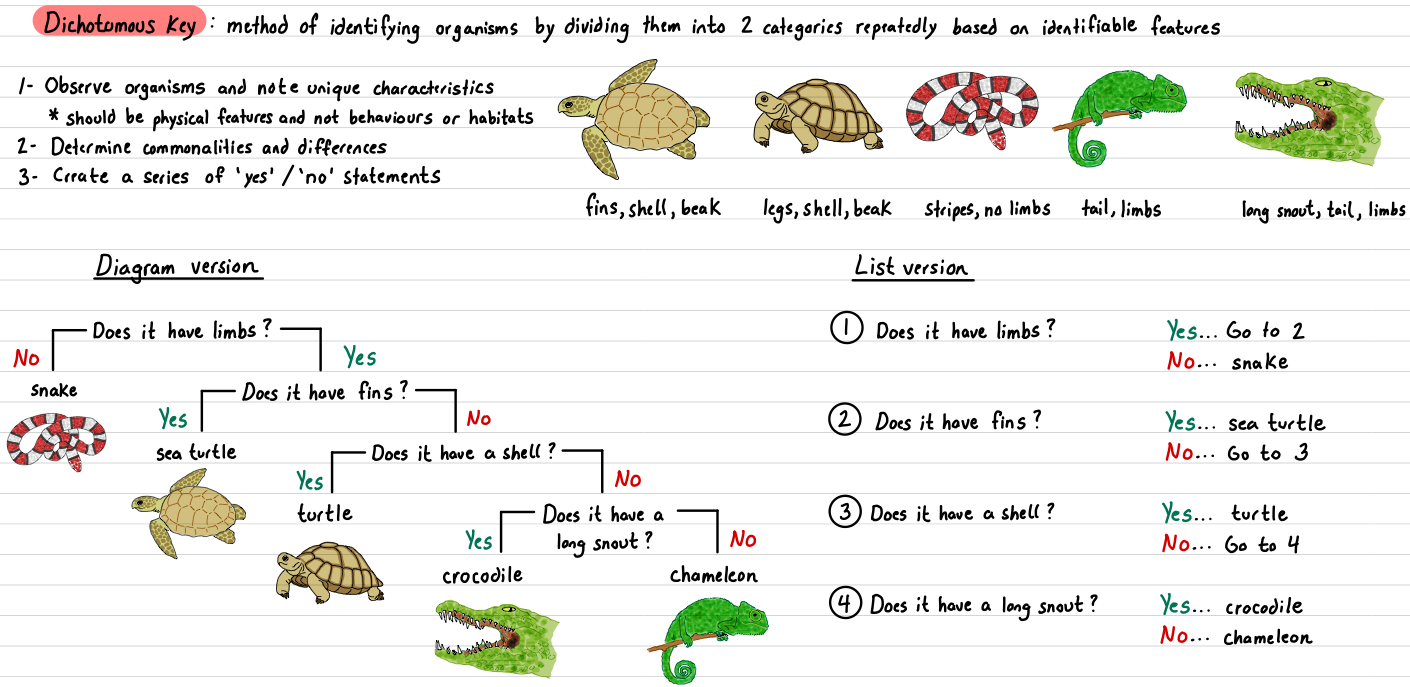 Dichotomous Key: method of identifying organisms by dividing them into 2 categories repeatedly based on identifiable features
1- Observe organisms and note unique characteristics
* should be physical features and not behaviours or habitats
2- Determine commonalities and differences
3- Create a series of 'yes' / 'no' statements
fins, shell, beak
legs, shell, beak
stripes, no limbs
tail, limbs
long snout, tail, limbs
Diagram version
Does it have limbs?
No
Yes
snake
Does it have fins?
Yes
No
sea turtle
Does it have a shell?
Yes
No
turtle
Does it have a
long snout?
Yes
No
crocodile
chameleon
List version
1 Does it have limbs? Yes... Go to 2
No... snake
2 Does it have fins? Yes... sea turtle
No... Go to 3
3 Does it have a shell? Yes... turtle
No... Go to 4
4 Does it have a long snout? Yes... crocodile
No... chameleon